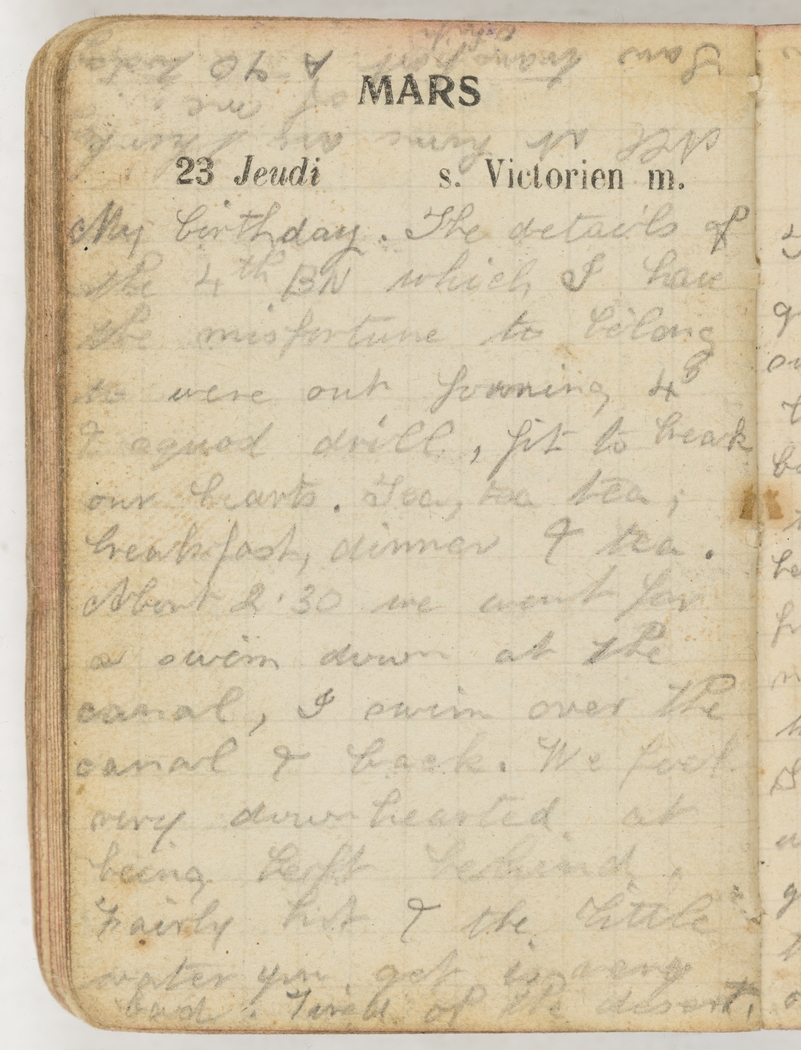 Saw transport A 40 today
MARS
All at home are thinking of me.
23 Jeudi s. Victorien m.
My birthday. The details of
the 4th BN which I have
the misfortune to belong
to were out forming 4s
& squad drill, fit to break
our hearts. Tea, tea tea,
breakfast, dinner & tea.
About 2.30 we went for
a swim down at the
canal, I swim over the
canal & back. We feel
very downhearted at
being left behind.
Fairly hot & the little
water you get is very
bad. Tired of the desert.